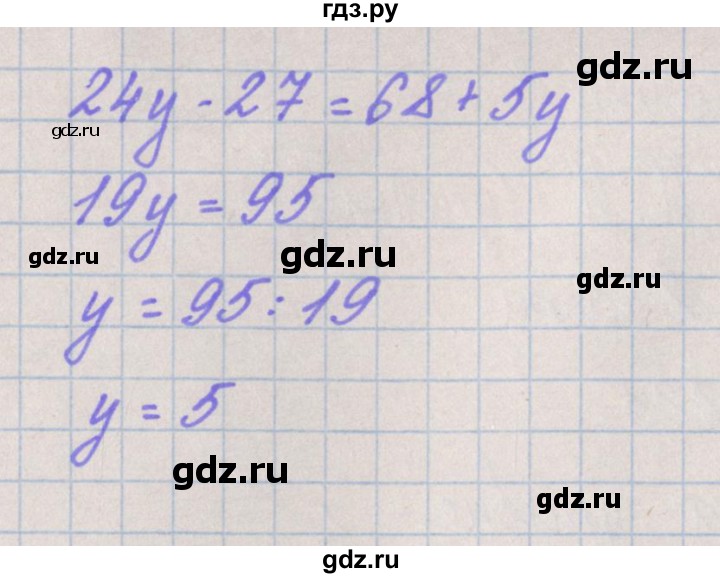 гдз.ру
gdz.ru
24y - 27 = 68 + 5y
gdz.ru
19y = 95
gdz.ru
gdz.ru
gdz.ru
y = 95 : 19
y = 5
gdz.ru
gdz.ru
gdz.ru